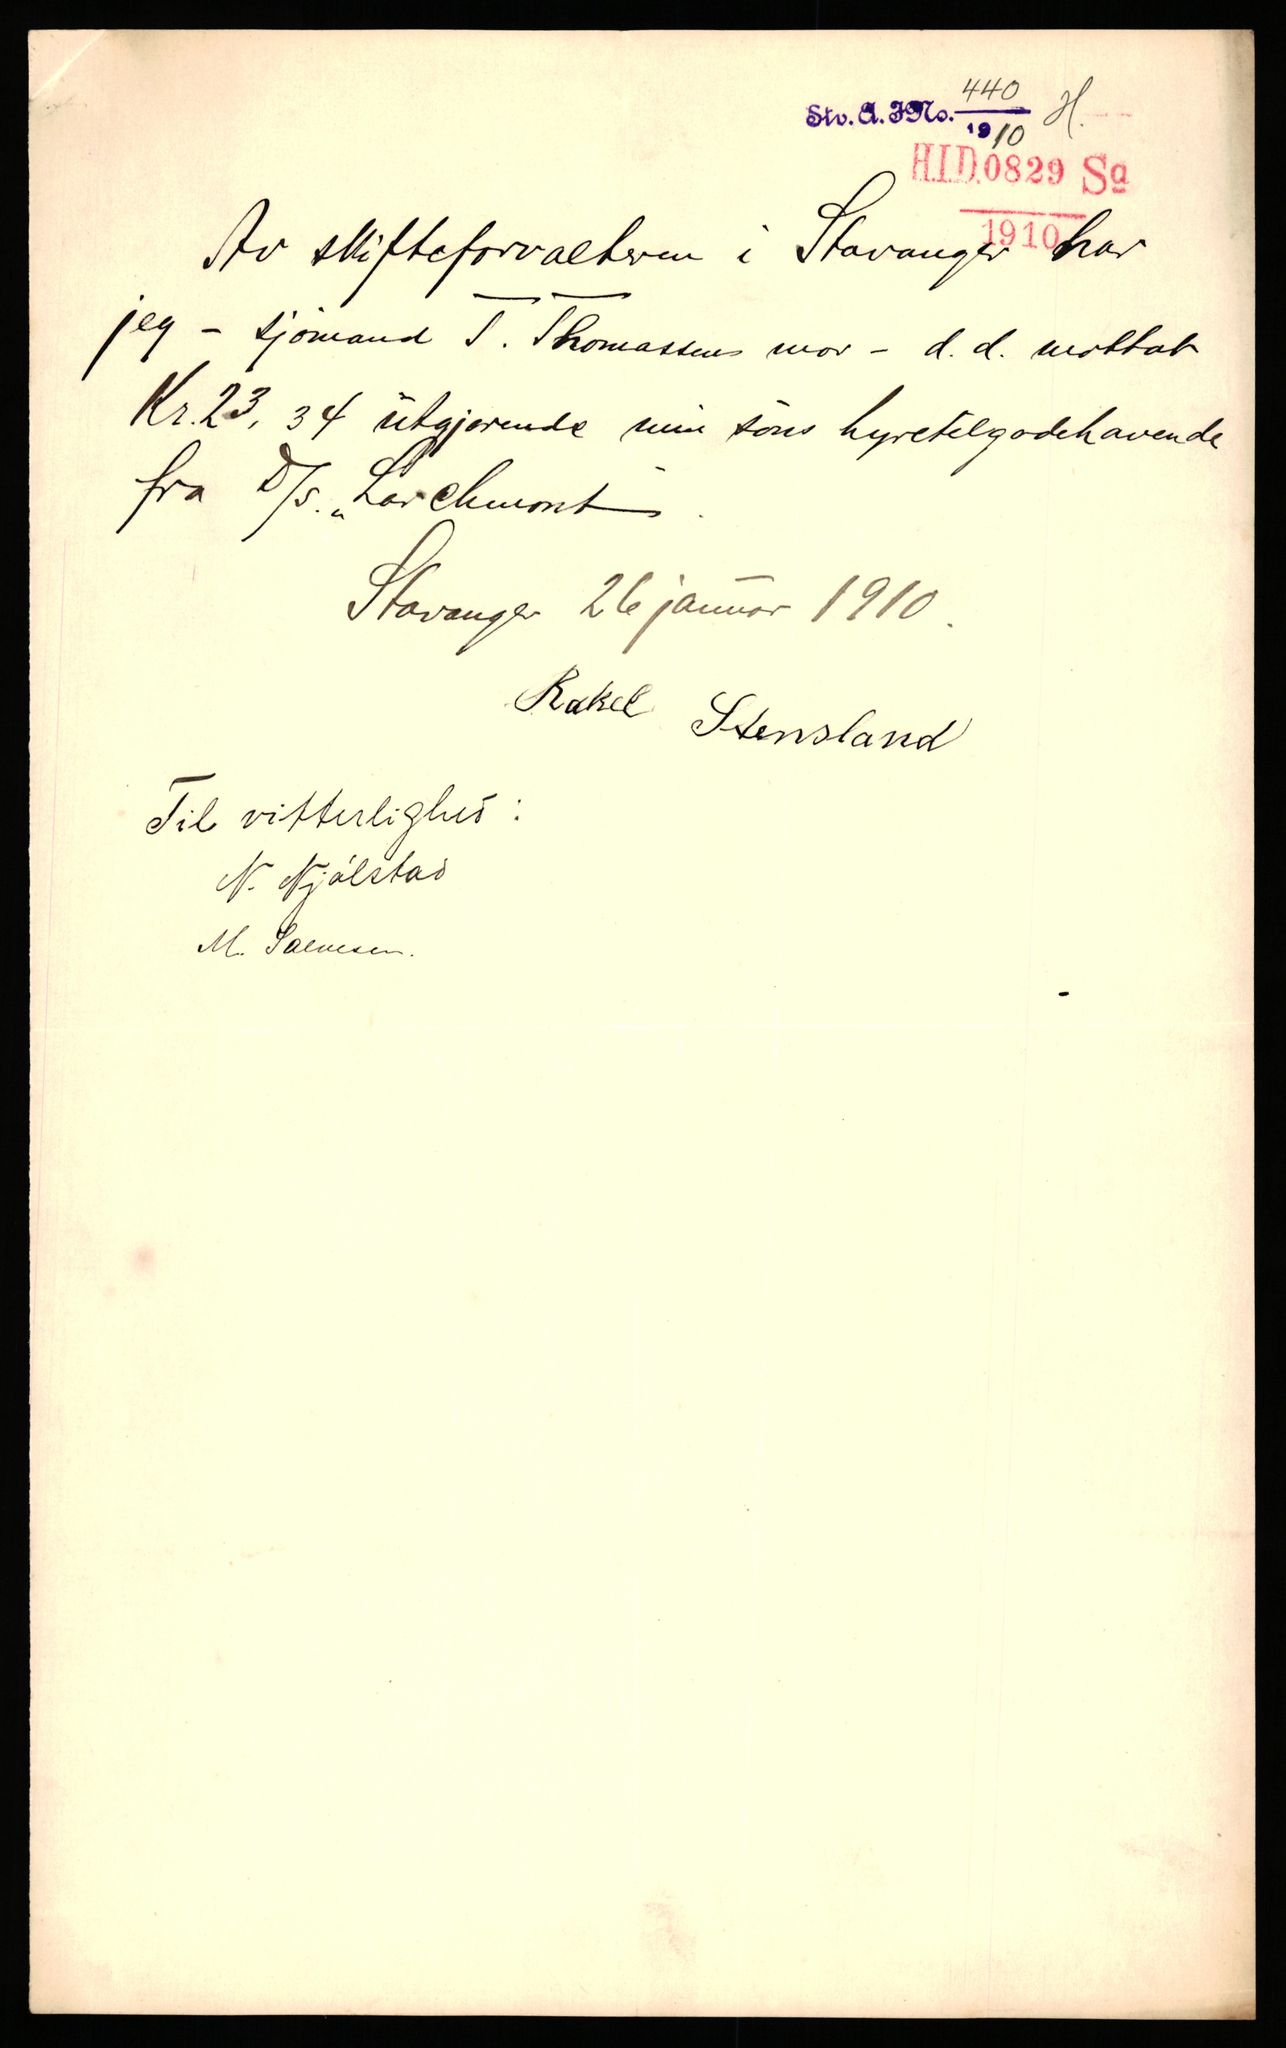 Stv. A. JNo. 440 H.
1910
H.I.D. 0829 Sa
1910
Av skifteforvalteren i Stavanger har
jeg - sjömand T. Thomassens mor - d. d. mottat
Kr. 23,34 utgjørende min søns hyretilgodehavende
fra D/S. „Larchmont".
Stavanger 26 januar 1910.
Rakel Stensland
Til vitterlighed:
N. Njålstad
M. Salvesen.